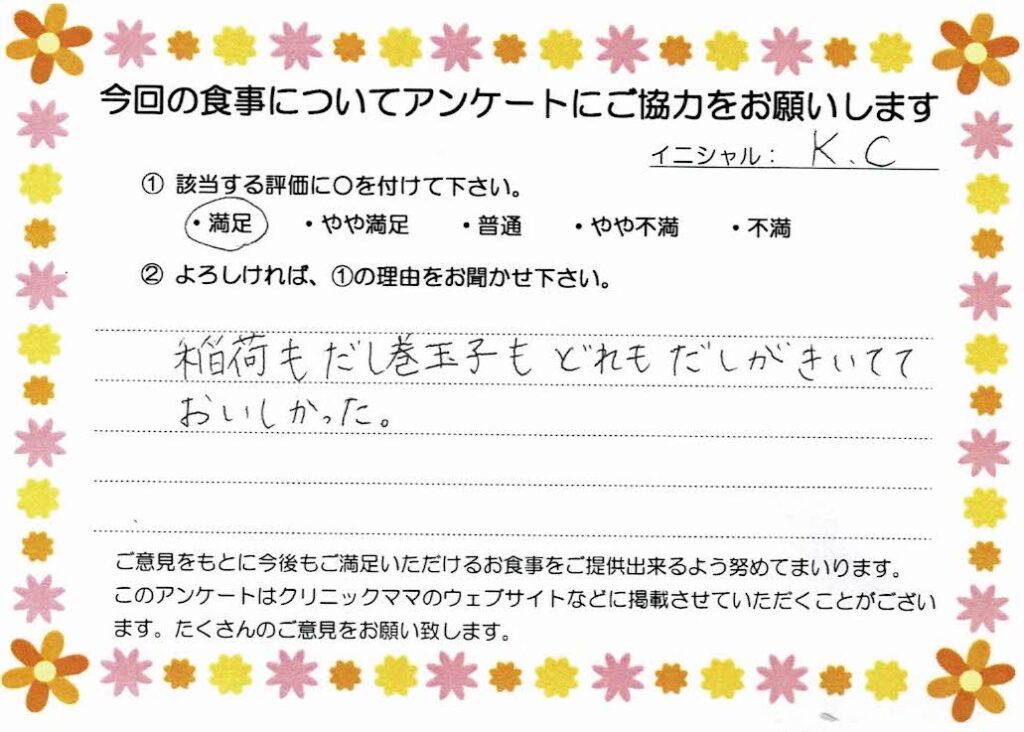 今回の食事についてアンケートにご協力をお願いします
イニシャル： K.C
① 該当する評価に○を付けて下さい。
・満足 ・やや満足 ・普通 ・やや不満 ・不満
② よろしければ、①の理由をお聞かせ下さい。
稲荷もだし巻玉子もどれもだしがきいてて
おいしかった。
ご意見をもとに今後もご満足いただけるお食事をご提供出来るよう努めてまいります。
このアンケートはクリニックママのウェブサイトなどに掲載させていただくことがござい
ます。たくさんのご意見をお願い致します。